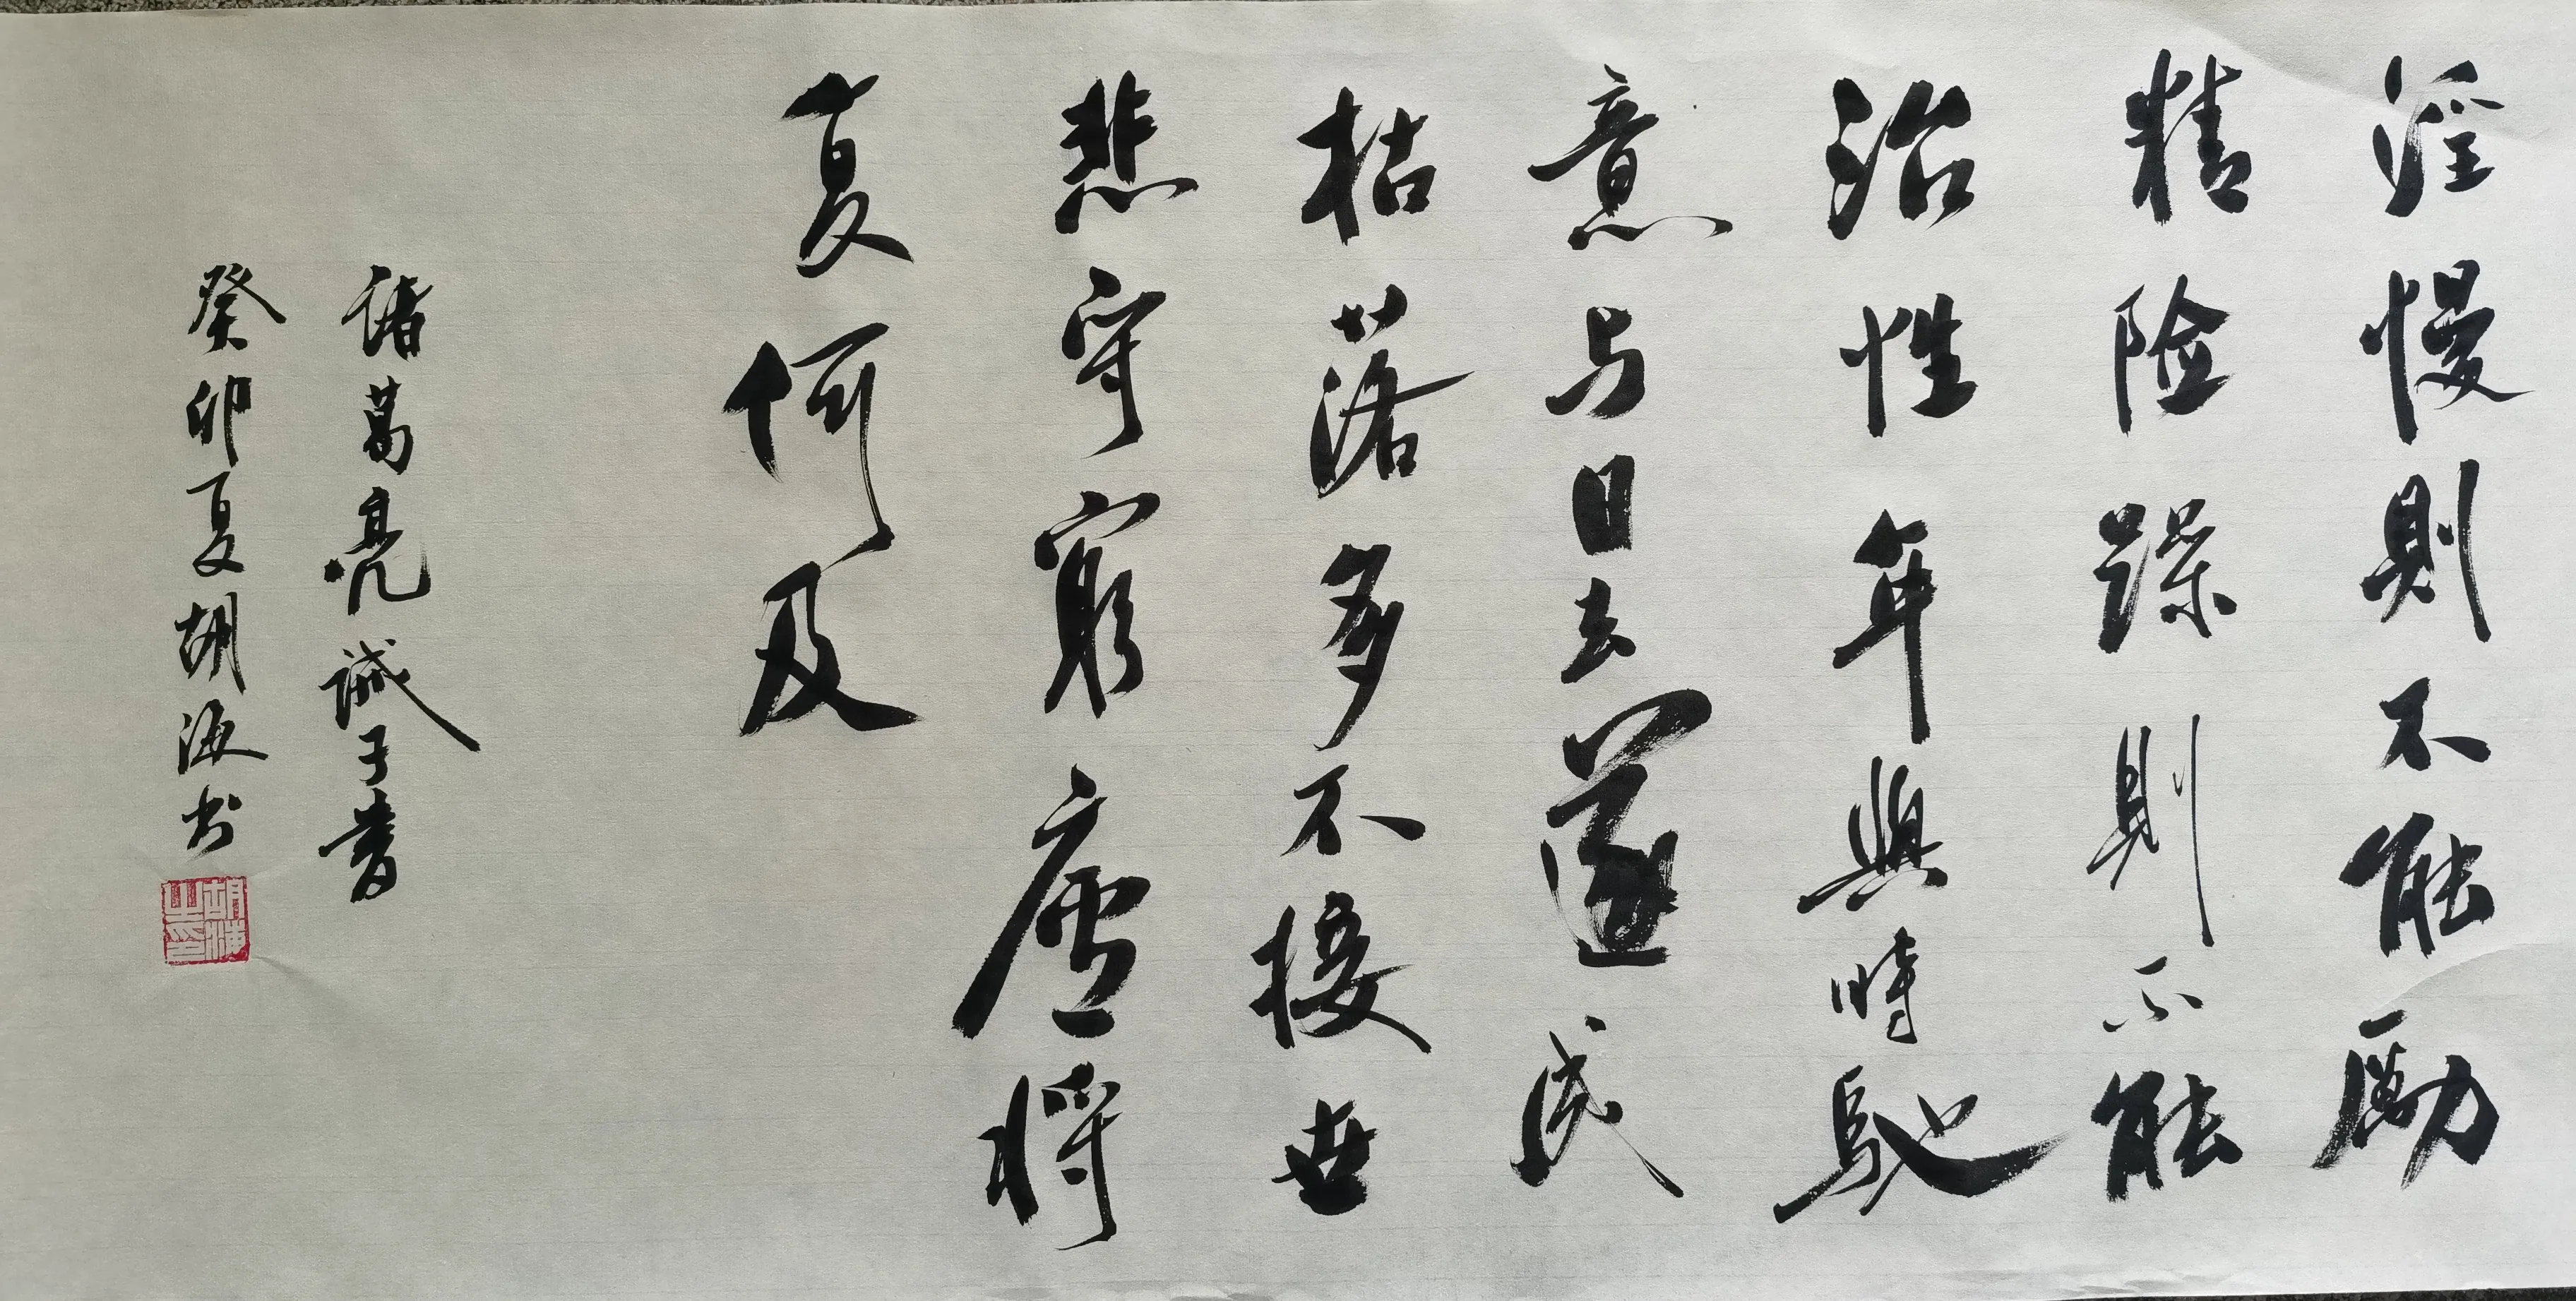 淫慢則不能勵
精险躁則不能
治性年與時馳
意与日去遂成
枯落多不接世
悲守窮廬將
复何及
諸葛亮誡子書
癸卯夏胡海书
胡海之印